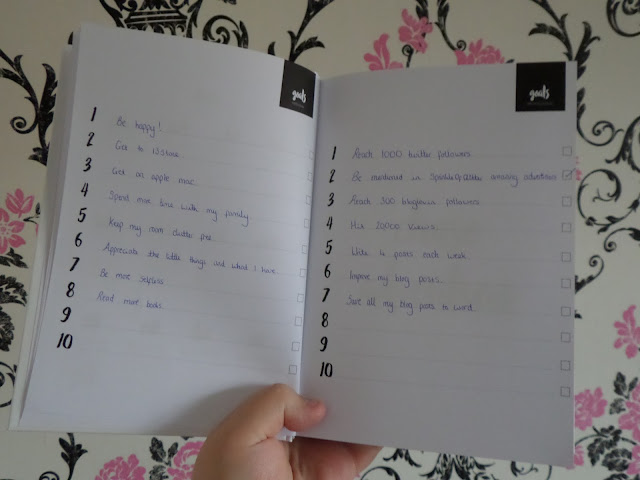 goals
1 Be happy!
2 Get to 15 stone.
3 Get an apple mac.
4 Spend more time with my family.
5 Keep my room clutter free.
6 Appreciate the little things and what I have.
7 Be more selfless
8 Read more books.
9
10
goals
1 Reach 1000 twitter followers.
2 Be mentioned in amazing adventures
3 Reach 300 bloglovin followers.
4 Hit 20000 views.
5 Write 4 posts each week.
6 Improve my blog posts.
7 Save all my blog posts to word.
8
9
10